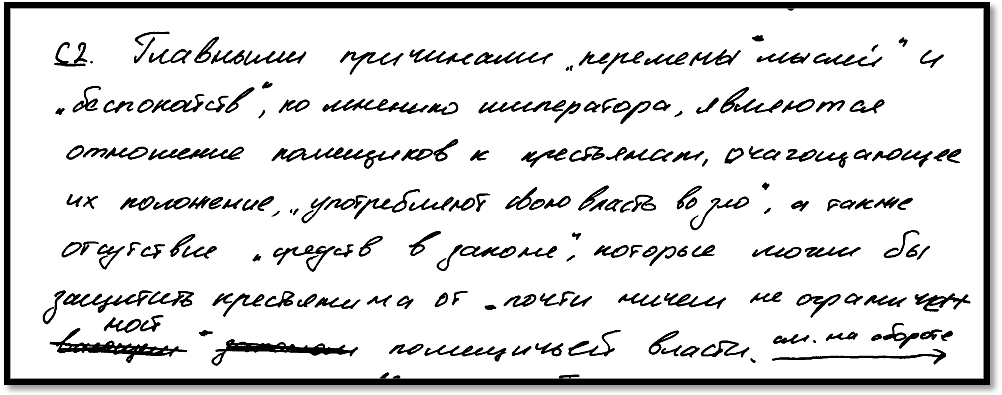 С2. Главными причинами „перемены "мыслей" и
„беспокойств", по мнению императора, являются
отношение помещиков к крестьянам, отягощающее
их положение, „употребляют свою власть во зло", а также
отсутствие „средств в законе", которые могли бы
защитить крестьянина от „почти ничем не ограничен
ной" помещичьей власти. см. на обороте